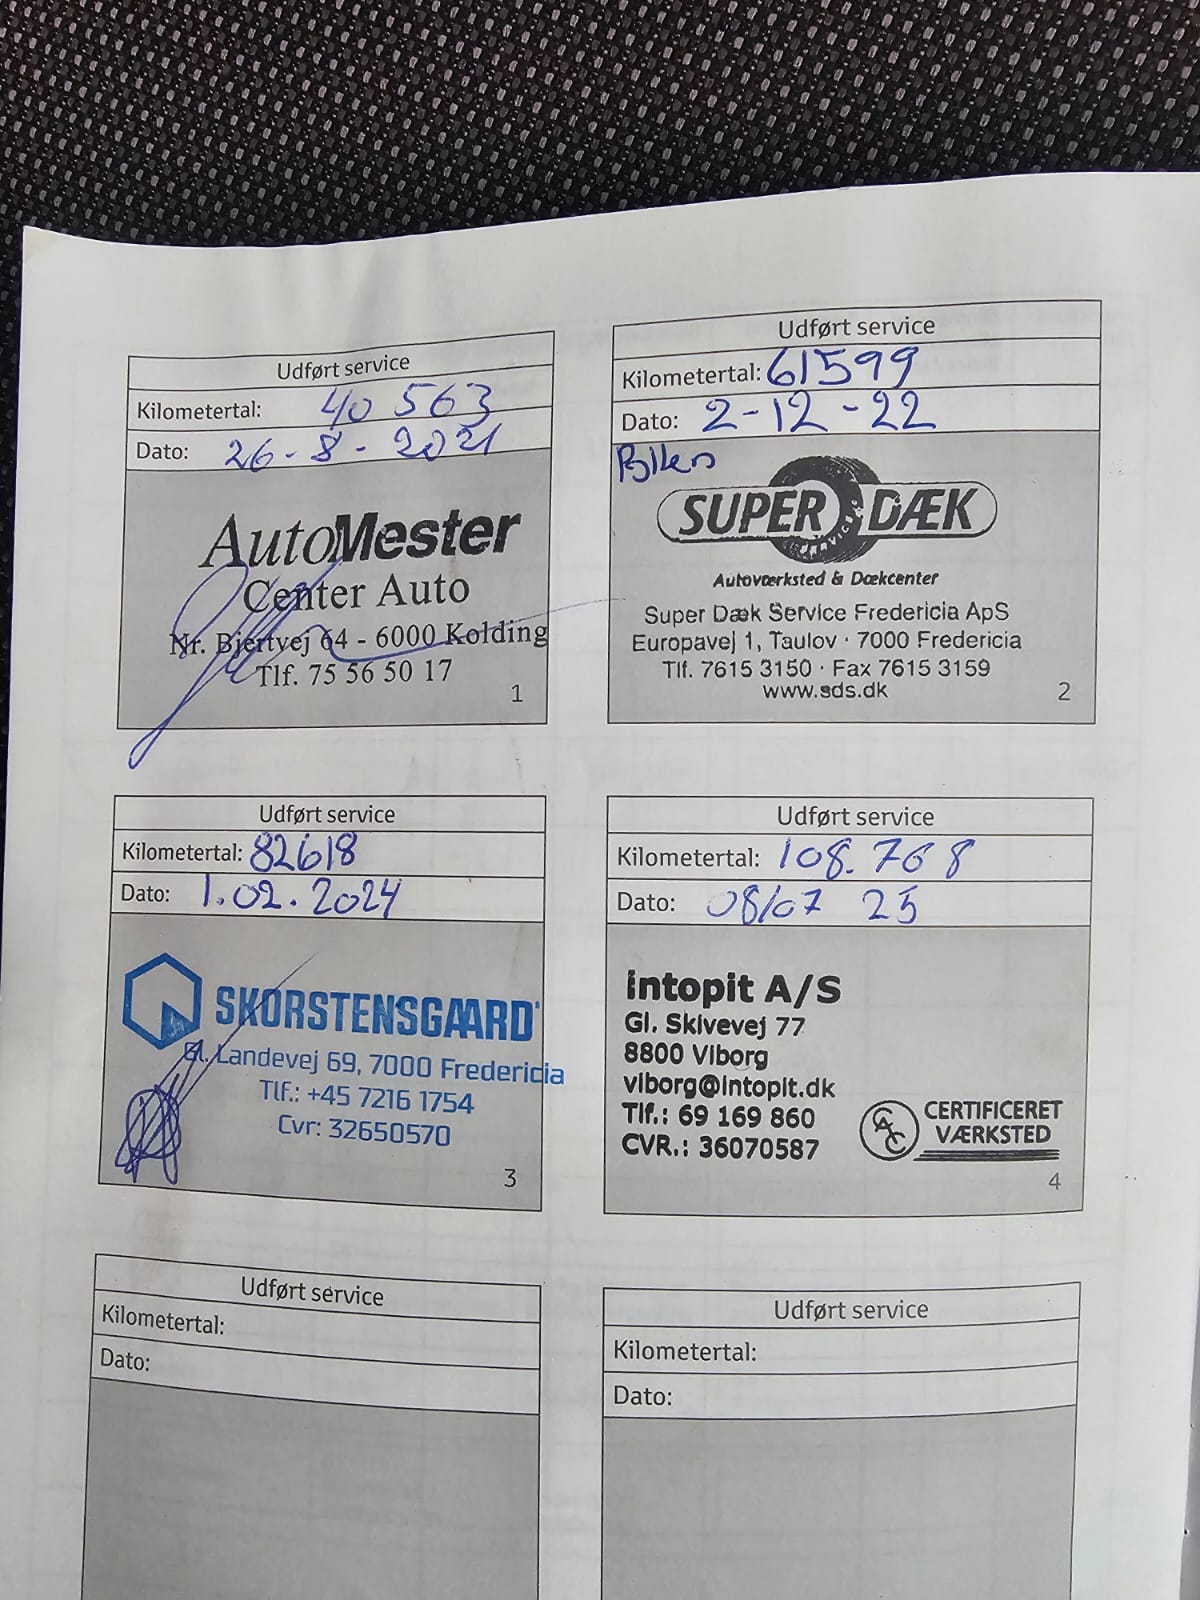 Udført service
Kilometertal: 40 563
Dato: 26-8-2021
AutoMester
Center Auto
Nr. Bjertvej 64 - 6000 Kolding
Tlf. 75 56 50 17
1
Udført service
Kilometertal: 61599
Dato: 2-12-22
Pollen
SUPER DÆK
SERVICE
Autoværksted & Dækcenter
Super Dæk Service Fredericia ApS
Europavej 1, Taulov · 7000 Fredericia
Tlf. 7615 3150 · Fax 7615 3159
www.sds.dk
2
Udført service
Kilometertal: 82618
Dato: 1.02.2024
SKORSTENSGAARD
Gl. Landevej 69, 7000 Fredericia
Tlf.: +45 7216 1754
Cvr: 32650570
3
Udført service
Kilometertal: 108.768
Dato: 08/07 25
Intopit A/S
Gl. Skivevej 77
8800 Viborg
viborg@intopit.dk
Tlf.: 69 169 860
CVR.: 36070587
CAC
CERTIFICERET
VÆRKSTED
4
Udført service
Kilometertal:
Dato:
Udført service
Kilometertal:
Dato: